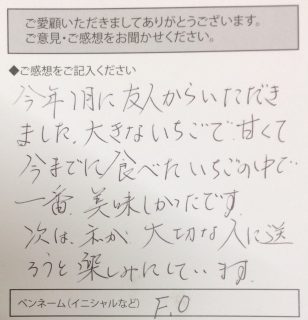 ご愛顧いただきましてありがとうございます。
ご意見・ご感想をお聞かせください。
◆ご感想をご記入ください
今年1月に友人からいただき
ました。大きないちごで甘くて
今までに食べたいちごの中で
一番美味しかったです。
次は、私が大切な人に送
ろうと楽しみにしています。
ペンネーム(イニシャルなど) F.O